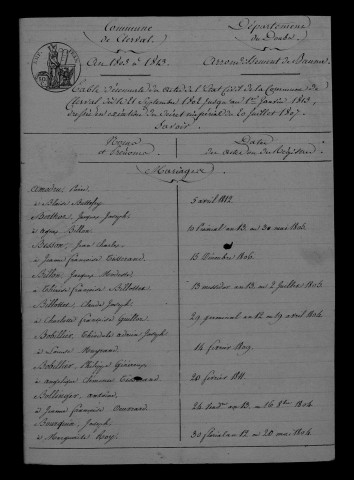 Commune
de Clerval
Département
du Doubs
An 1803 à 1813
Arrondissement de Baume
Table Décennale des Actes de l'Etat Civil de la Commune de
Clerval du 21 Septembre 1802 jusqu'au 1er Janvier 1813,
Dressée en exécution du Décret impérial du 20 Juillet 1807.
Savoir
Noms
et Prénoms
Dates
des actes ou du Registre
Mariages
Amodru
à Blaise
5 avril 1812
Berthot Jacques Joseph
à Billey
10 Prairial an 13 ou 30 mai 1805
Besson Jean Charles
à Jeanne Françoise Tisserand
15 Décembre 1806
Jacques
à Thérèse Françoise Billottet
13 messidor an 13 ou 2 Juillet 1805
Billottet Claude Joseph
à Charlotte Françoise
29 germinal an 12 ou 19 avril 1804
Bohillier Joseph
à Louise
14 février 1809
Bohillier Philippe
à angélique Tisserand
20 février 1811
Bollinger antoine
à Jeanne Françoise
24 an 13 ou 16 8bre 1804
Bourquin Joseph
à Marguerite
30 floréal an 12 ou 20 mai 1804